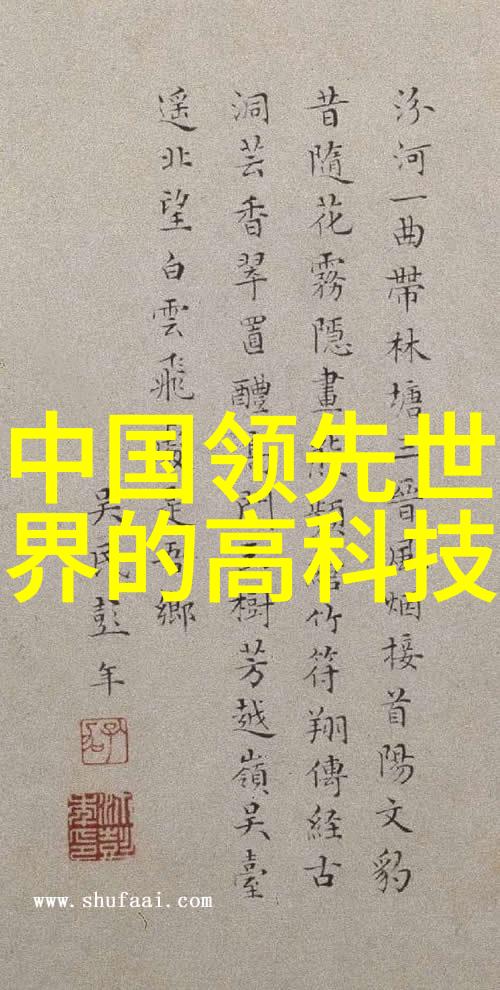 中国领先世
界的高科技
汾河一曲帶林塘三晉風烟接首陽文豹
昔隨花霧隱畫竹符翔傳經古
洞芸香翠置醴門樹芳越嶺吳臺
遥北望白雲飛鄉
吳彭年
www.shufaai.com